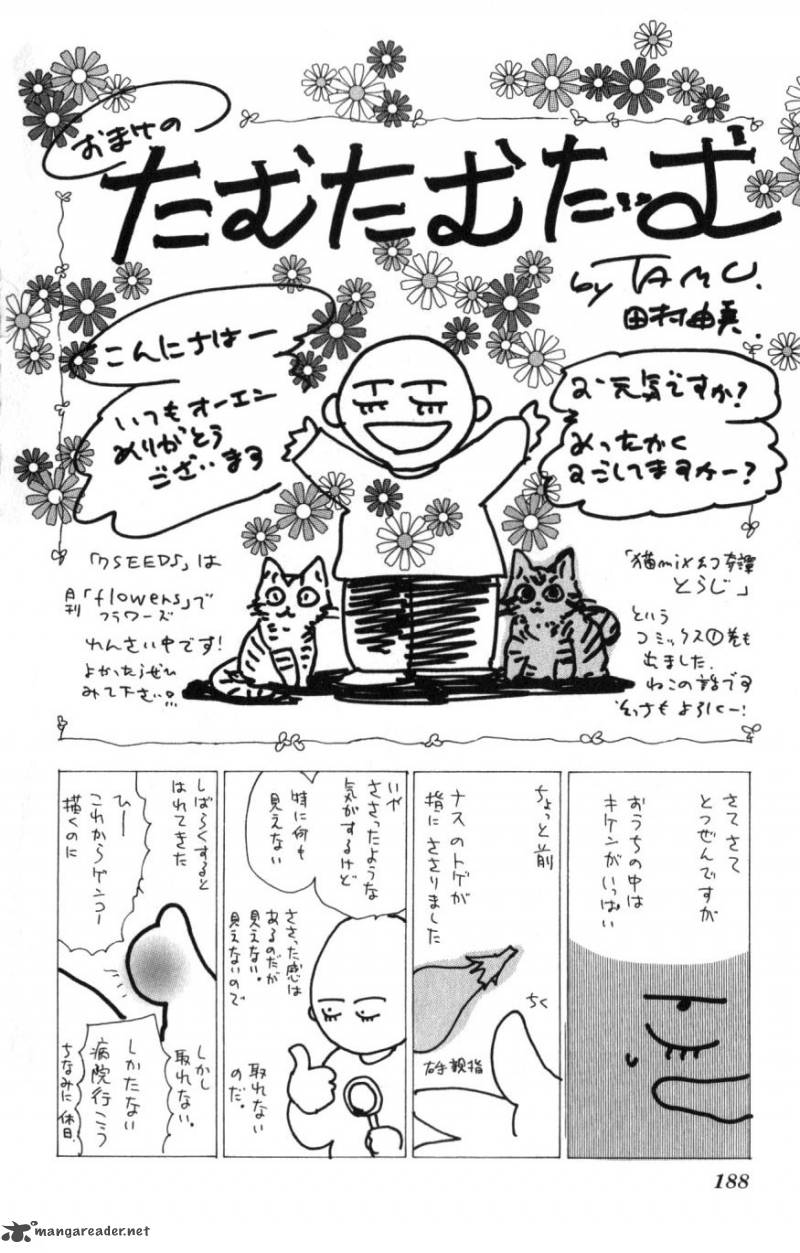 おまけの
たむたむたいむ
by TAMU.
田村由美.
こんにちはー
いつもオーエン
ありがとう
ございます
お元気ですか?
あったかく
すごしてますかー?
「7SEEDS」は
月刊「flowers」で
フラワーズ
れんさい中です!
よかったらぜひ
みて下さい。
「猫mix幻奇譚
とらじ」
という
コミックス①巻も
出ました.
ねこの話です
そっちもよろしくー!
さてさて
とつぜんですが
おうちの中は
キケンがいっぱい
ちょっと前
ナスのトゲが
指にささりました
ちく
右手親指
いや
ささったような
気がするけど
特に何も
見えない
ささった感は
あるのだが
見えない。
見えないので
取れない
のだ。
しばらくすると
はれてきた
ひー
これからゲンコー
描くのに
しかし
取れない。
しかたない
病院行こう
ちなみに休日.
188
mangareader.net